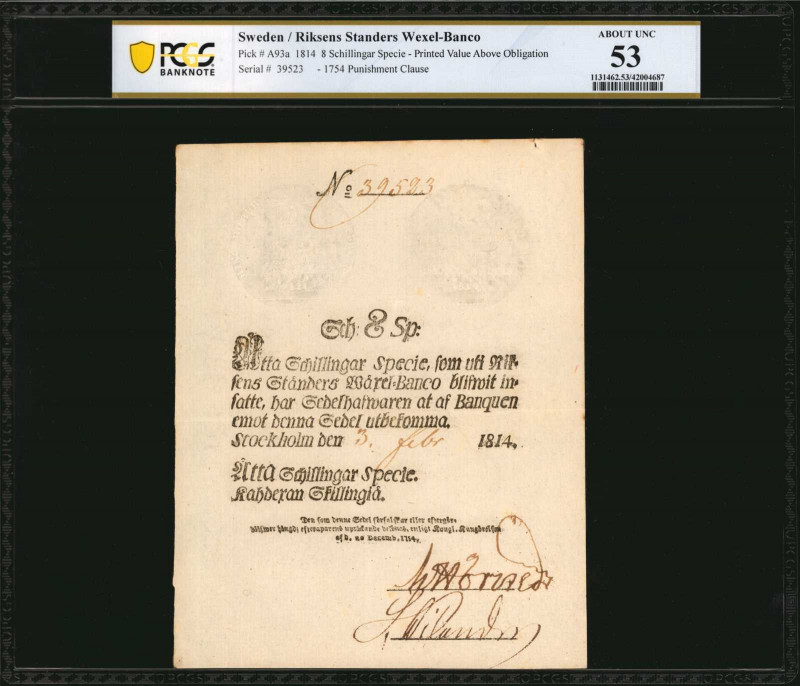 PCGS
BANKNOTE
Sweden / Riksens Standers Wexel-Banco
Pick # A93a 1814 8 Schillingar Specie - Printed Value Above Obligation
Serial # 39523 - 1754 Punishment Clause
ABOUT UNC
53
1131462.53/42004687
No 39523
Sch: 8 Sp:
Åtta Schillingar Specie, som uti Rik-
sens Ständers Wäxel-Banco blifwit in-
satte, har Sedelhafwaren at af Banquen
emot denna Sedel utbekomma.
Stockholm den 3. Febr 1814.
Åtta Schillingar Specie.
Kahdexan Skillingiä.
Den som denne Sedel förfalskar eller eftergör,
enligt Kongl. Kungörelsen